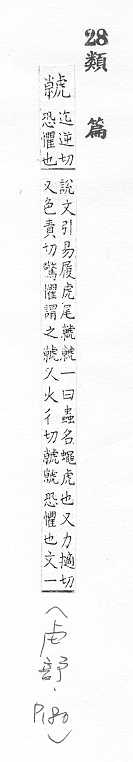 28類篇
虩
迄逆切
恐懼也
說文引易履虎尾虩虩一曰蟲名蠅虎也又力摘切
又色責切驚懼謂之虩又火彳切虩虩恐懼也文一
(虎部·P.180)